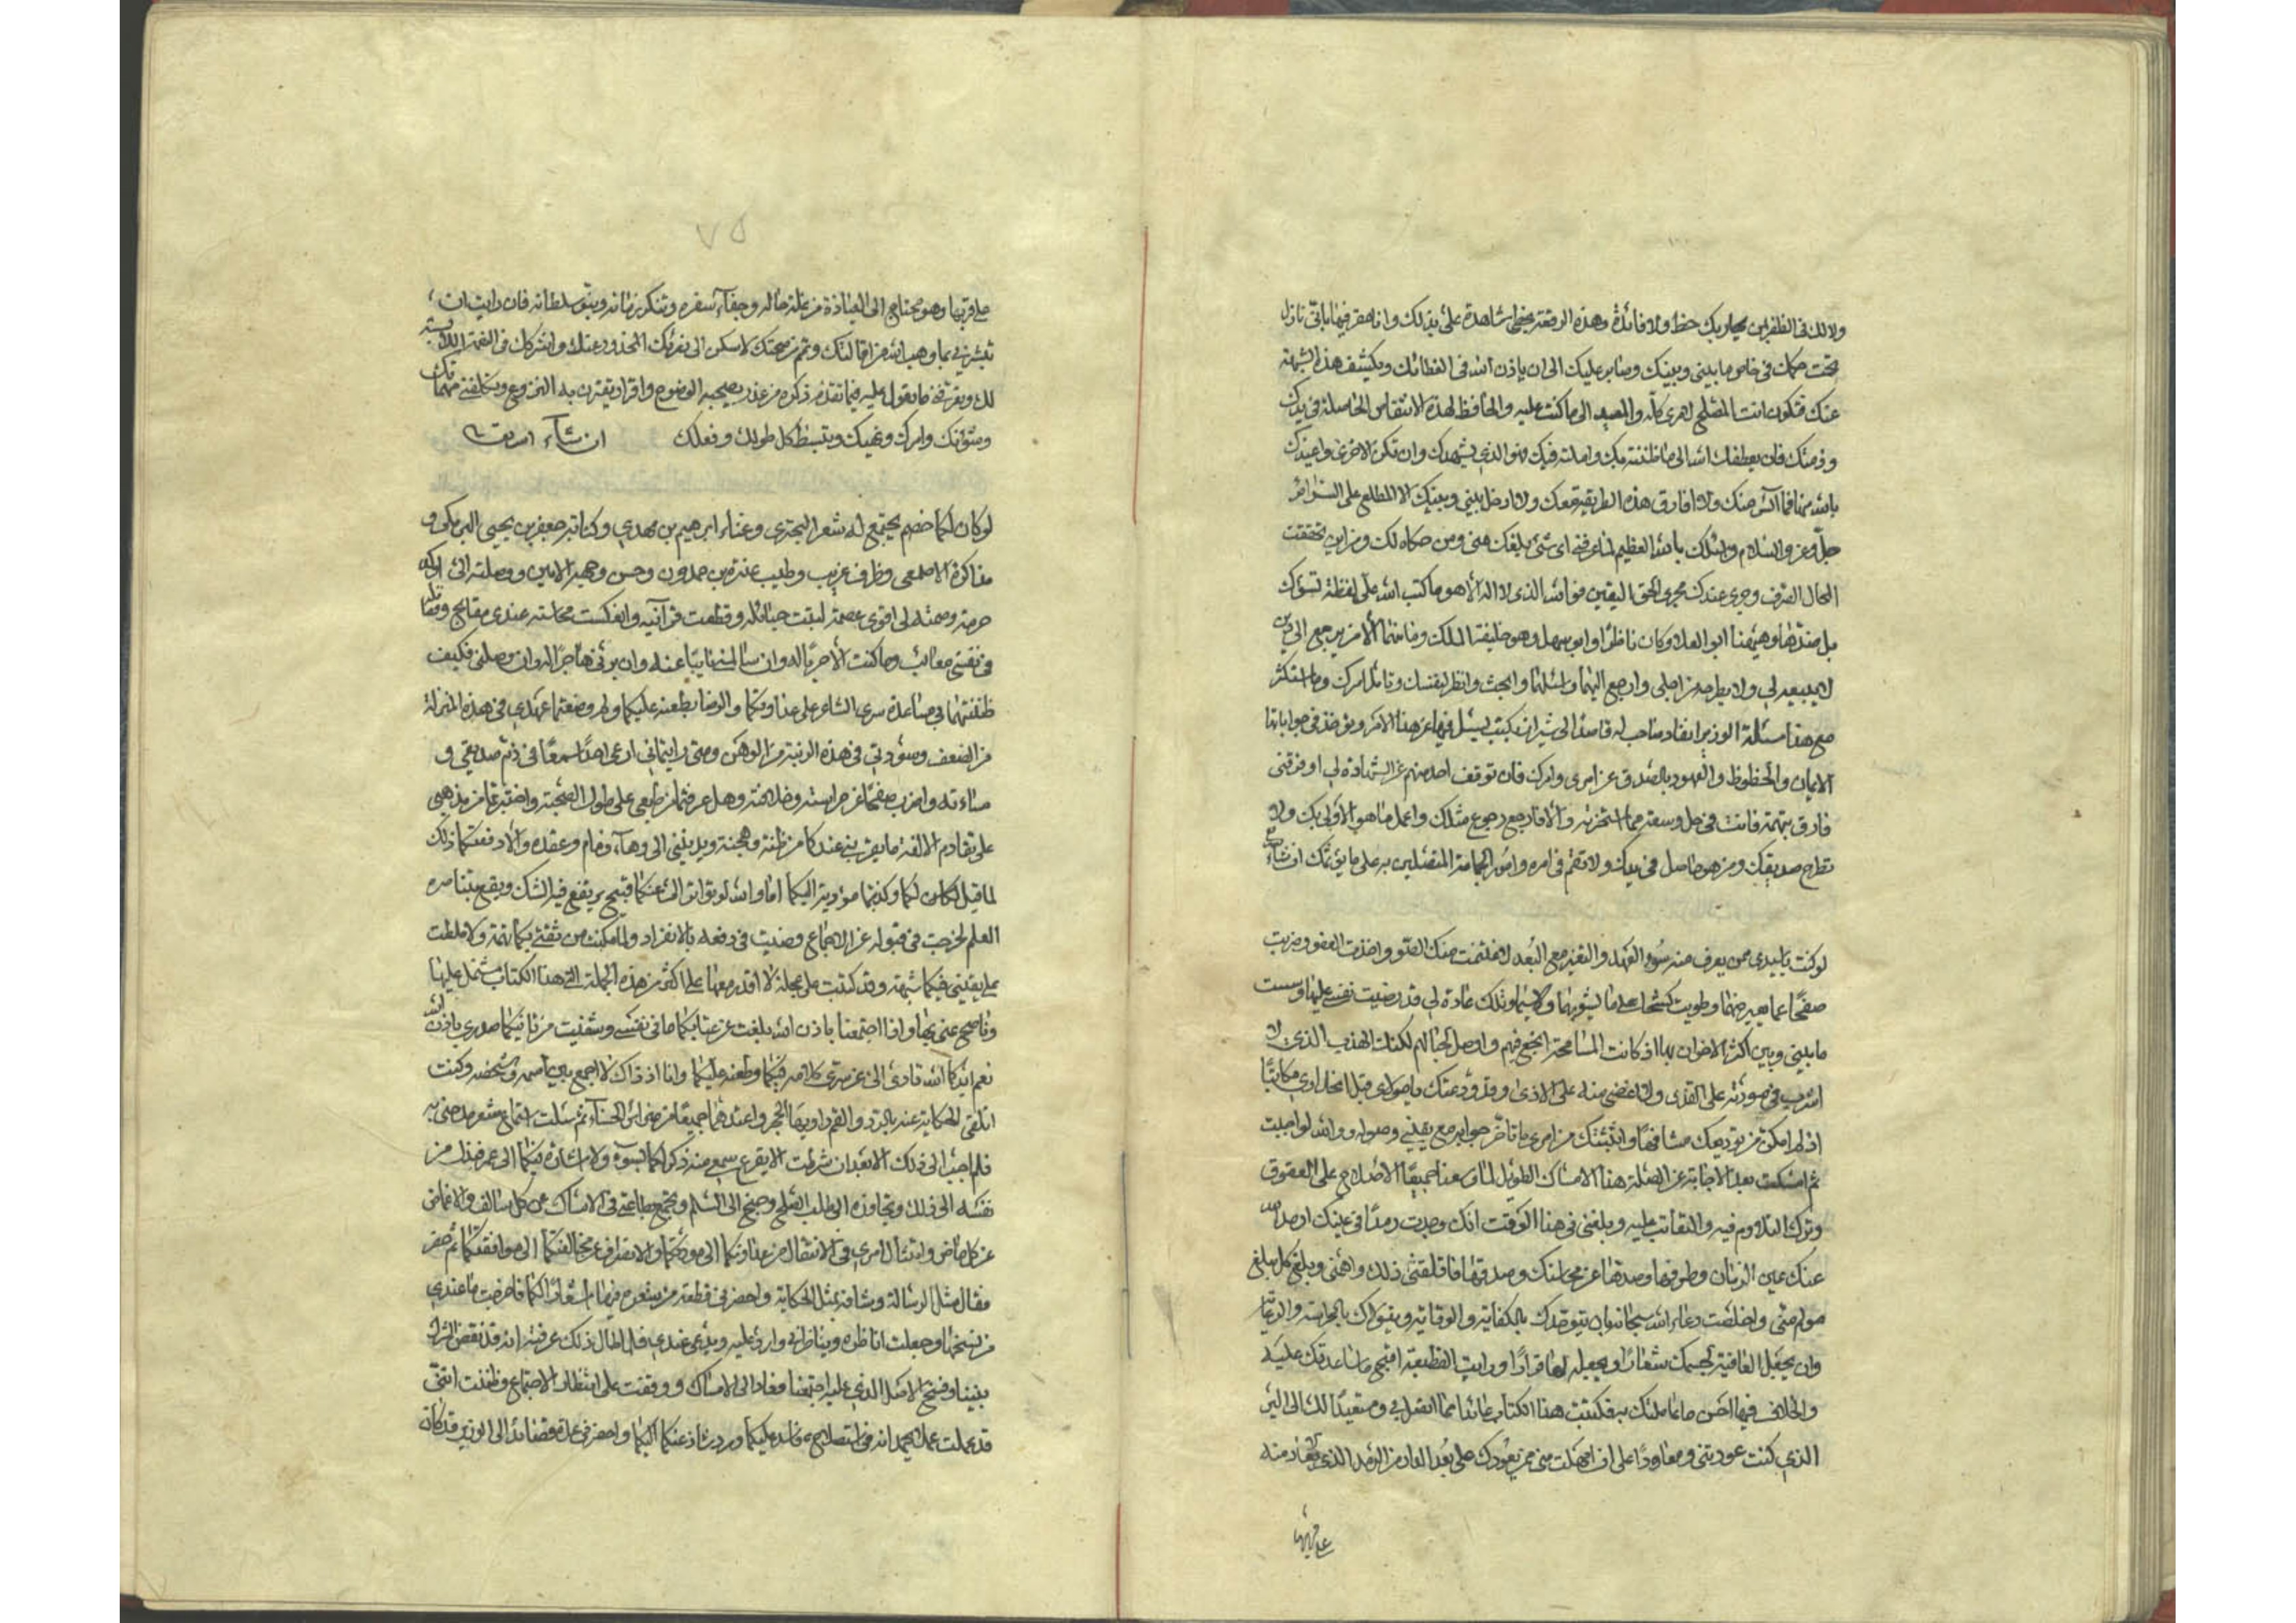 ولا لك في الظفر بمن يحاربك حظ ولا فائدة وهذه الرقعة بخطي شاهدة على بذلك وانا فيها باق نازل
تحت حكمك في خاص ما بيني وبينك وصابر عليك الى ان ياذن الله في ويكشف هذه الشبهة
عنك فتكون انت المصلح لامري كله والمعيد الى ما كنت عليه والحافظ لهذه الحاصلة في يدك
وذمتك فان يعطفك الله الى ما ظننته بك واملته فيك فهو الذي يشهدك وان تكن الاخرى واعيذك
بالله منها فما آلس منك ولا افارق هذه الطريقة معك ولا ادخل بيني وبينك الا المطلع على السرائر
جل وعز والسلام واسئلك بالله العظيم لما عرفته اي شئ بلغك عني ومن حكاه لك ومن اين تحققت
الحال الصرف وجرى عندك مجرى الحق اليقين فوالله الذي لا اله الا هو ما كتب الله على لفظة تسوءك
بل ضدها وهيهنا ابو العلاء وكان ناظرا وابو سهل وهو خليفة الملك وما منهما الا من يرجع الى دين
لا يبيعه لي ولا يطرحه من اجلي وارجع اليهما واسئلهما وابحث وانظر لنفسك وتامل امرك وما استكثر
مع هذا مسئلة الوزير انفاد صاحب له قاصدا الى شيراز بكتب يسئل فيها عن هذا الامر ويؤخذ في جواباتها
الايمان والحظوظ والعهود بالصدق عن امري وامرك فان توقف احد منهم عن الشهادة لي او فرقني
فارق بتهمة فانت في حل وسعة مما استخرته والا فارجع رجوع مثلك واعمل ما هو الاولى بك ولا
تطرح صديقك ومن هو حاصل في يدك ولا تقم في امره وامور الجماعة المتصلين به على ما يؤثمك ان شاء الله
لو كنت يا سيدي ممن يعرف منه سوء العهد والتغير مع البعد لاغتنمت منك العتو واخذت العفو وضربت
صفحا عما يعير منها وطويت كشحا على ما يشوبها ولا سيما وتلك عادة لي قد رضيت نفسي عليها وسست
ما بيني وبين اكثر الاخوان بها اذ كانت المسامحة انجع فيهم واوصل لحبالهم لكنك المهذب الذي لا
اشرب في مودته على القذى ولا اغضي منه على الاذى وقد ودعتك يا مولاي قبل انحداري مكاتبا
اذ لم امكن من توديعك مشافها وابثثتك من امري ما تاخر جوابه مع يقيني وصوله ووالله لو اجبت
ثم امسكت بعد الاجابة عن الصلة هذا الامساك الطويل لما وسعنا جميعا الاصلاح على العقوق
وترك التلاوم فيه والتعاتب عليه وبلغني في هذا الوقت انك وجدت رمدا في عينك ارمد الله
عنك عين الزمان وطرفها وصدها عن محاسنك وصدقها فاقلقني ذلك واهمني وبلغ كل مبلغ
مولم مني واخلصت دعاء الله سبحانه بان يتوحدك بالكفاية والوقاية ويتولاك بالحراسة والرعاية
وان يجعل العافية لجسمك شعارا ويجعله لها قرارا ورايت القطيعة اقبح ما ساعدتك عليه
والخلاف فيها احسن ما عاملتك به فكتبت هذا الكتاب عائدا مما انفصل بي ومستعيدا لك الى البر
الذي كنت عودتني ومعاودا على ان امهلت مني من يعودك على بعد الدار من الرمد الذي تعاد منه
على قربها
٧٥
على قربها وهو محتاج الى العيادة من علة حاله وجفاء سفره وتنكر زمانه ونبو سلطانه فان رايت ان
تبشرني بما وهب الله من اقالتك وتمم من صحتك لاسكن الى نفرتك المحذور عنك واشركك في النعمة اللابسة
لك وتعرفني ما يقول عليه فيما تقدم ذكره من عذر يصحبه الوضوح واقرار يقترن به النزوع وتكلفني مهماتك
وسوانك وامرك ونهيك وتبسط كل طولك وفعلك ان شاء الله تعالى
لو كان لكما خصم يجتمع له شعر البحتري وغناء ابرهيم بن مهدي وكتابة جعفر بن يحيى البرمكي و
مذاكرة الاصمعي وظرف عريب وطيب عشرة بن حمدون وحسن وجه الامين ووصلته الى اوكد
حرمة وضمته الى اقوى عصمة لبتت حباله وقطعت قرآئنه وانعكست محاسنه عندي مقابح
في نفسي معائب وما كنت الا حربا له وان سالمنا نايبا عنه وان بر بي هاجرا له وان وصلني فكيف
ظننتما بي مساعدة سري الشاعر على عداوتكما والرضا بطعنه عليكما ولم وضعتما عهدي في هذه المنزلة
من الضعف ومودتي في هذه الرتبة من الوهن ومتى رايتماني ارعي احدا سمعا في ذم صديقي و
مساءته واضرب صفحا عن حراسته وهل عرفتما من طبعي على طول الصحبة واختبرتما من مذهبي
على تقادم الالفة ما يعرضني عندكما من ظنة وهجنة ويدنيني الى وهاء ذمام وعقده والا دفعتما ذلك
لما قيل لكما وكذبتما مؤديه اليكما اما والله لو تواترا لي عنكما قبيح يرتفع فيه الشك ويقع بتناصره
العلم لخرجت في قبوله عن الاجماع ومضيت في دفعه بالانفراد ولما مكنت من ثقتي بكما تهمة ولا سلطت
على يقيني فيكما شبهة وقد كتبت على عجلة لا اقدر معها على اكثر من هذه الجملة التي هذا الكتاب مشتمل عليها
وناصح عني بها واذا اجتمعنا باذن الله بلغت عن عتابكما ما في نفسي وشفيت من تانيبكما صدري باذن الله
نعم ايدكما الله تادى الي عن سري كلامه فيكما وطعنه عليكما وانا اذ ذاك لا اجمع بين اسمه وشخصه وكنت
اتلقى الحكاية عنه بالرد والقم راويها الحجر واعتدهما جميعا من ثم سئلت استماع شعر مدحني به
فلم اجب الى ذلك الا بعد ان شرطت الا يقرع سمعي منه ذكر لكما بسوء ولا اشارة فيكما الى عمر فبذل من
نفسه الى ذلك وتجاوزه الى طلب الصلح وجنح الى السلم وتجمع بطاعتي في الامساك عن كل سالف والاغماض
عن كل ماض وامتثال امري في الانتقال من عداوتكما الى مودتكما والانصراف عن مخالفتكما الى موافقتكما ثم حضر
فقال مثل الرسالة وشافه بمثل الحكاية واحضرني قطعة من شعره فيها اشعار لكما فاخرجت ما عندي
من نسخها وجعلت اناظره ويناظرني وارد عليه ويدعي عندي فلما طال ذلك عرفته انه قد نقض الشرط
بيننا وفسخ الاصل الذي عليه اجتمعنا فعاد الى الامساك ووقفت على انتظار الاجتماع وظننت انني
قد عملت عملا يحمد اثره في استصلاح فاسد عليكما ورد شاذ عنكما اليكما واحضرني عدة قصائد الى الوزير قد كان